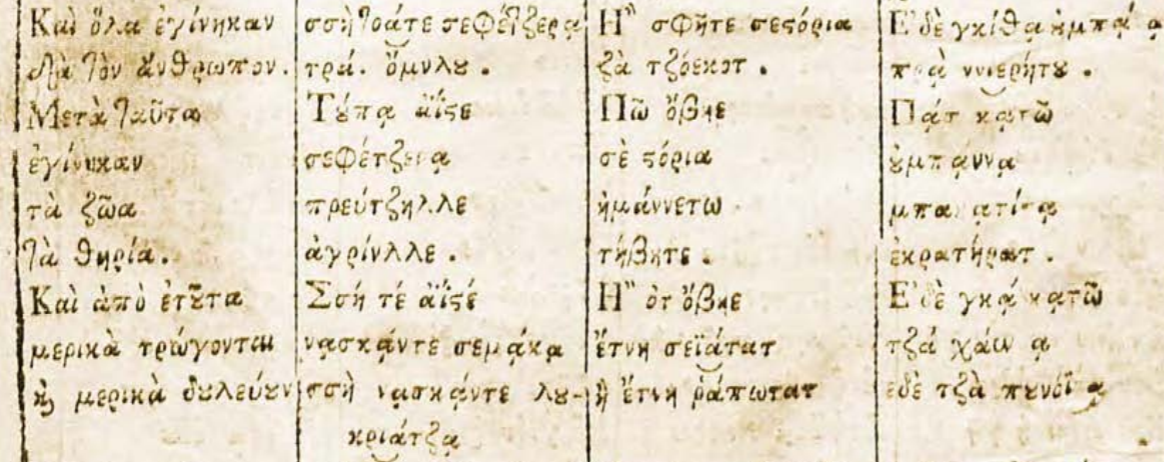 Καὶ ὅλα ἐγίνηκαν
διὰ τὸν ἄνθρωπον.
Μετὰ ταῦτα
ἐγίνηκαν
τὰ ζῶα
τὰ θηρία.
Καὶ ἀπὸ ἐτȣ͂τα
μερικὰ τρώγονται
ϗ μερικὰ δȣλεύȣν
σσὴ τοάτε σεφέτζερᾳ
τρά. ὄμνλȣ.
Τȣ́πᾳ ἀΐϛε
σεφέτζερᾳ
πρεύτζηλλε
ἀγρίνλλε.
Σσή τέ ἀΐϛέ
νᾳσκᾴντὲ σεμᾴκᾳ
σσὴ νᾳσκᾴντε λȣ-
κριάτζᾳ
Ἢ σφῆτε σεϛόρια
ζὰ τζόεκοτ.
Πῶ ὄβηε
σὲ ϛόρια
ἡμάννετω
τήβητε.
Ἢ ὀτ ὄβηε
ἔτνη σεϊάτατ
ἢ ἔτνη ῥάπωτατ
Ἐδὲ γκίθα
πρᾲ ννιερήτȣ.
Πᾴτ κᾳτῶ
ȣμπᾴννᾳ
ἐκρᾳτήρᾳτ.
Ἐδὲ γκᾴ κᾳτῶ
τζά χάω ᾳ
ἐδὲ τζὰ πȣνόϊ ᾳ